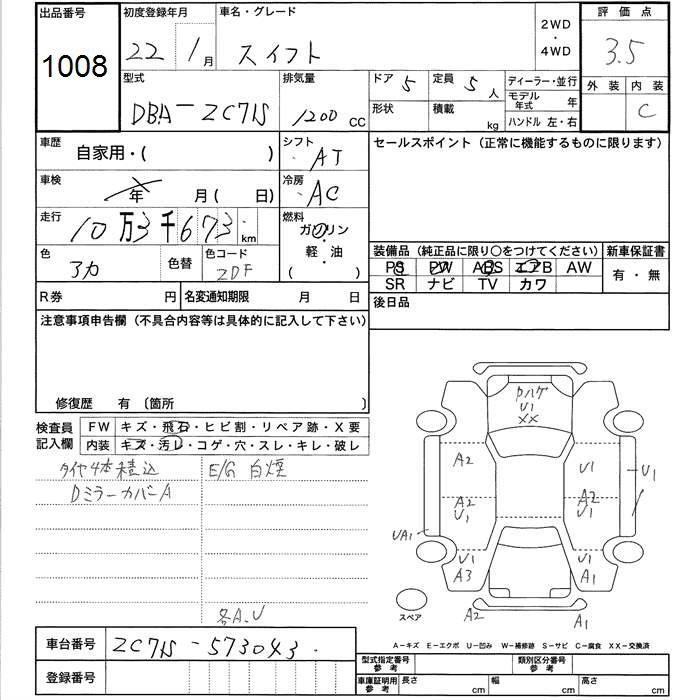 出品番号
1008
初度登録年月
22年 1月
車名・グレード
スイフト
2WD
・
4WD
評価点
3.5
外装 内装
C
型式
DBA-ZC71S
排気量
1200 CC
ドア 5
定員 5人
ディーラー・並行
形状
積載 kg
モデル年式 年
ハンドル 左・右
車歴 自家用・( )
シフト AT
セールスポイント(正常に機能するものに限ります)
車検 年 月( 日)
冷房 AC
走行 10万3千673km
燃料
ガソリン
・
軽・油
( )
色 アカ
色替
色コード ZDF
装備品(純正品に限り〇をつけてください)
新車保証書
PS PW ABS エアB AW
有・無
SR ナビ TV カワ
R券 円
名変通知期限 月 日
後日品
注意事項申告欄(不具合内容等は具体的に記入して下さい)
修復歴 有 〔箇所 〕
検査員
記入欄
FW キズ・飛石・ヒビ割・リペア跡・X要
内装 キズ・汚レ・コゲ・穴・スレ・キレ・破レ
タイヤ4本積込
E/G 白煙
DミラーカバーA
各A.U
ハゲ
U1
XX
A2
U1
U1
A2
U1
A2
U1
UA1
U1
A3
U1
A1
スペア
A2
A1
車台番号 ZC71S-573043
登録番号
A-キズ E-エクボ U-凹み W-補修跡 S-サビ C-腐食 XX-交換済
型式指定番号
参考
類別区分番号
参考
車庫証明用
参考
長さ cm
幅 cm
高さ cm